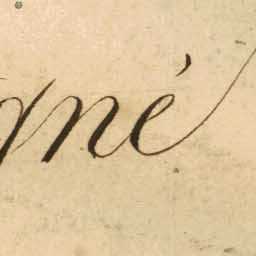 gné